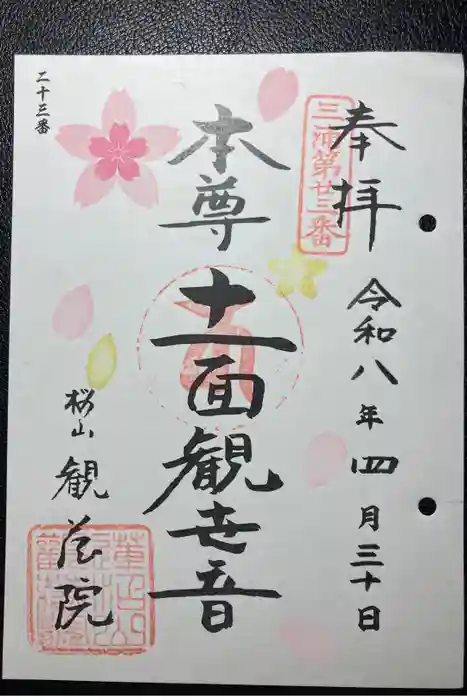 奉拝
三浦第廿三番
令和八年四月三十日
本尊 十一面観世音
二十三番
桜山 観蔵院